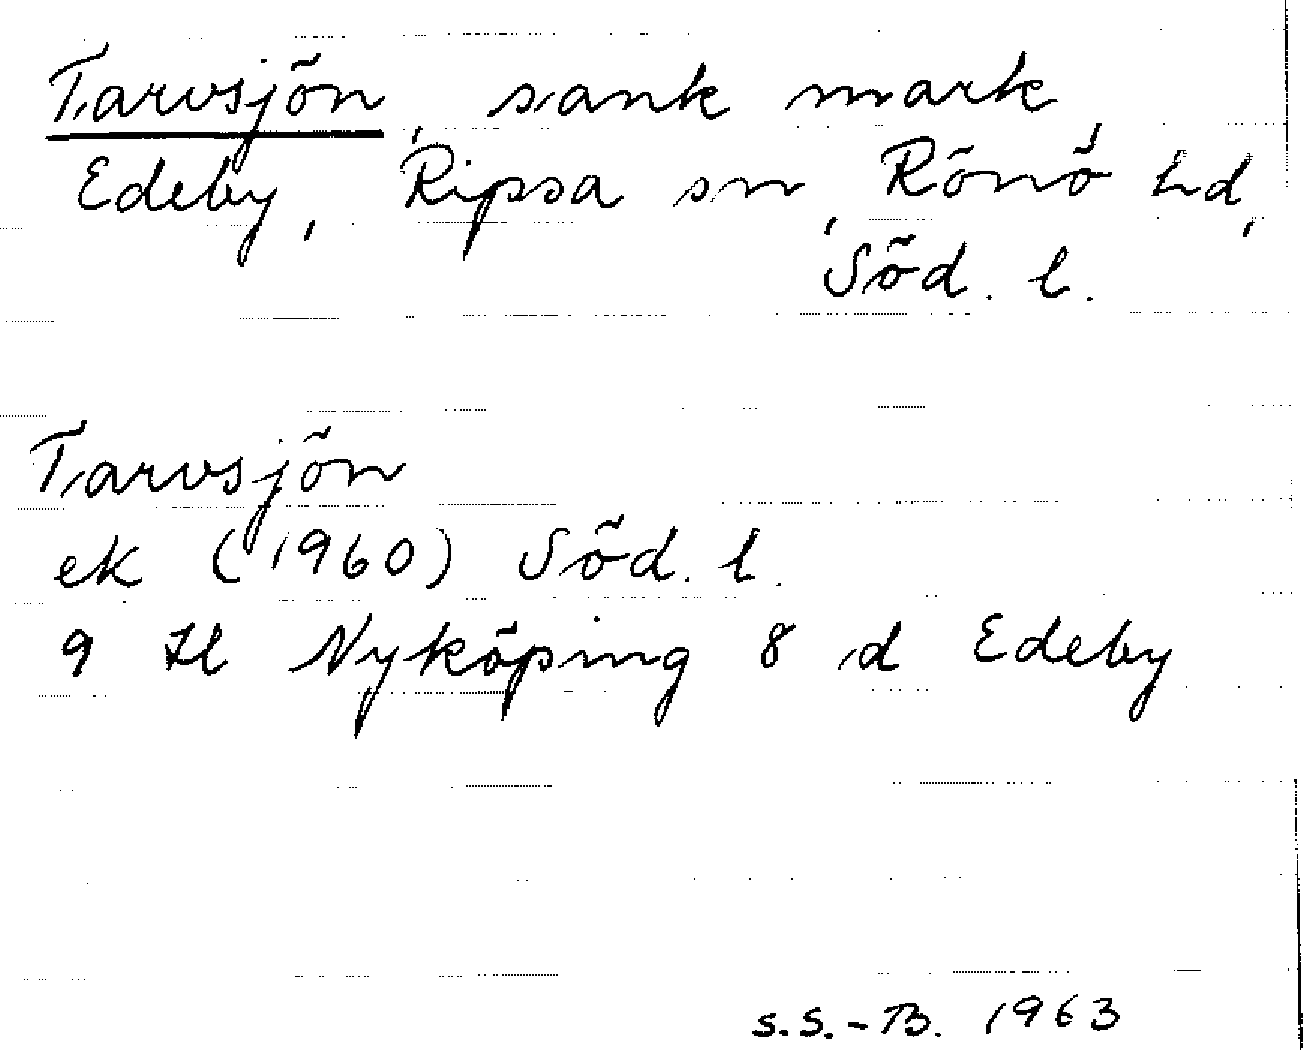 Tarvsjön, sank mark,
Edeby, Ripsa sn, Rönö hd,
Söd. l.
Tarvsjön
ek (1960) Söd. l.
9 H Nyköping 8 d Edeby
S.S.-B. 1963